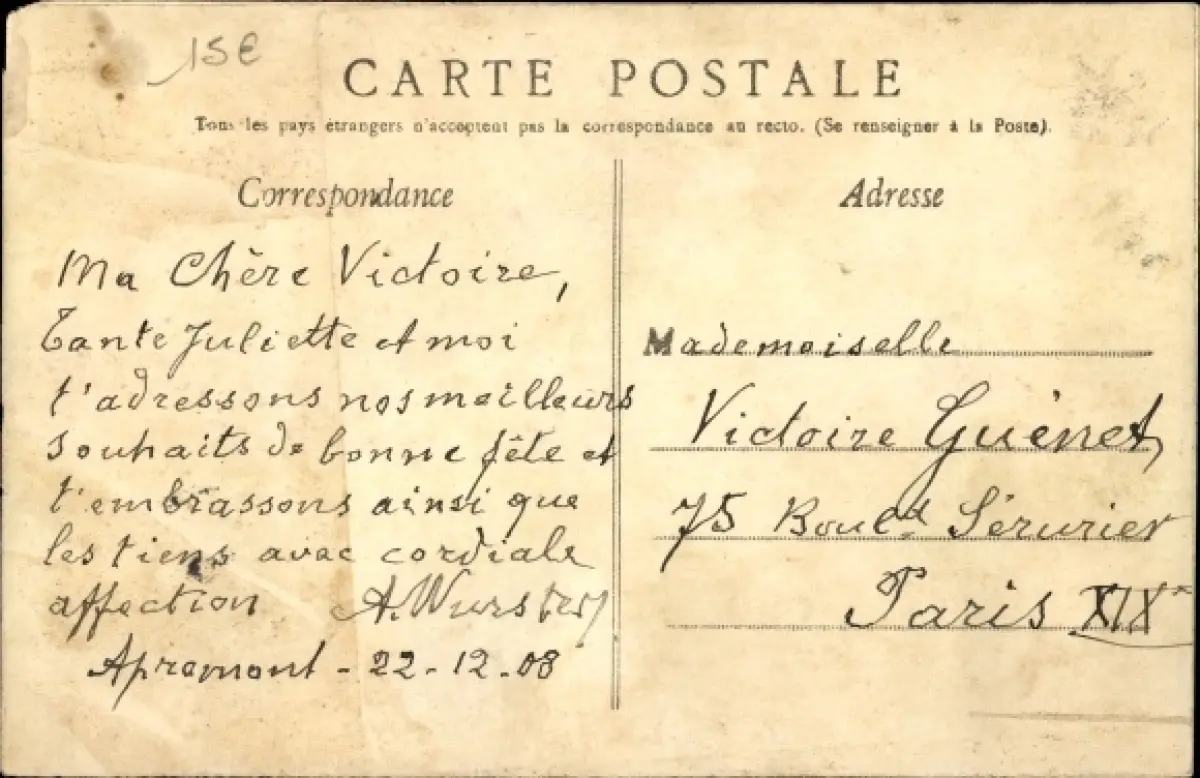 15€
CARTE POSTALE
Tous les pays étrangers n'acceptent pas la correspondance au recto. (Se renseigner à la Poste).
Correspondance
Ma Chère Victoire,
Tante Juliette et moi
t'adressons nos meilleurs
souhaits de bonne fête et
t'embrassons ainsi que
les tiens avec cordiale
affection A. Wurster
Apremont - 22-12-08
Adresse
Mademoiselle
Victoire Guénet,
75 Boul.d Sérurier
Paris XIXe